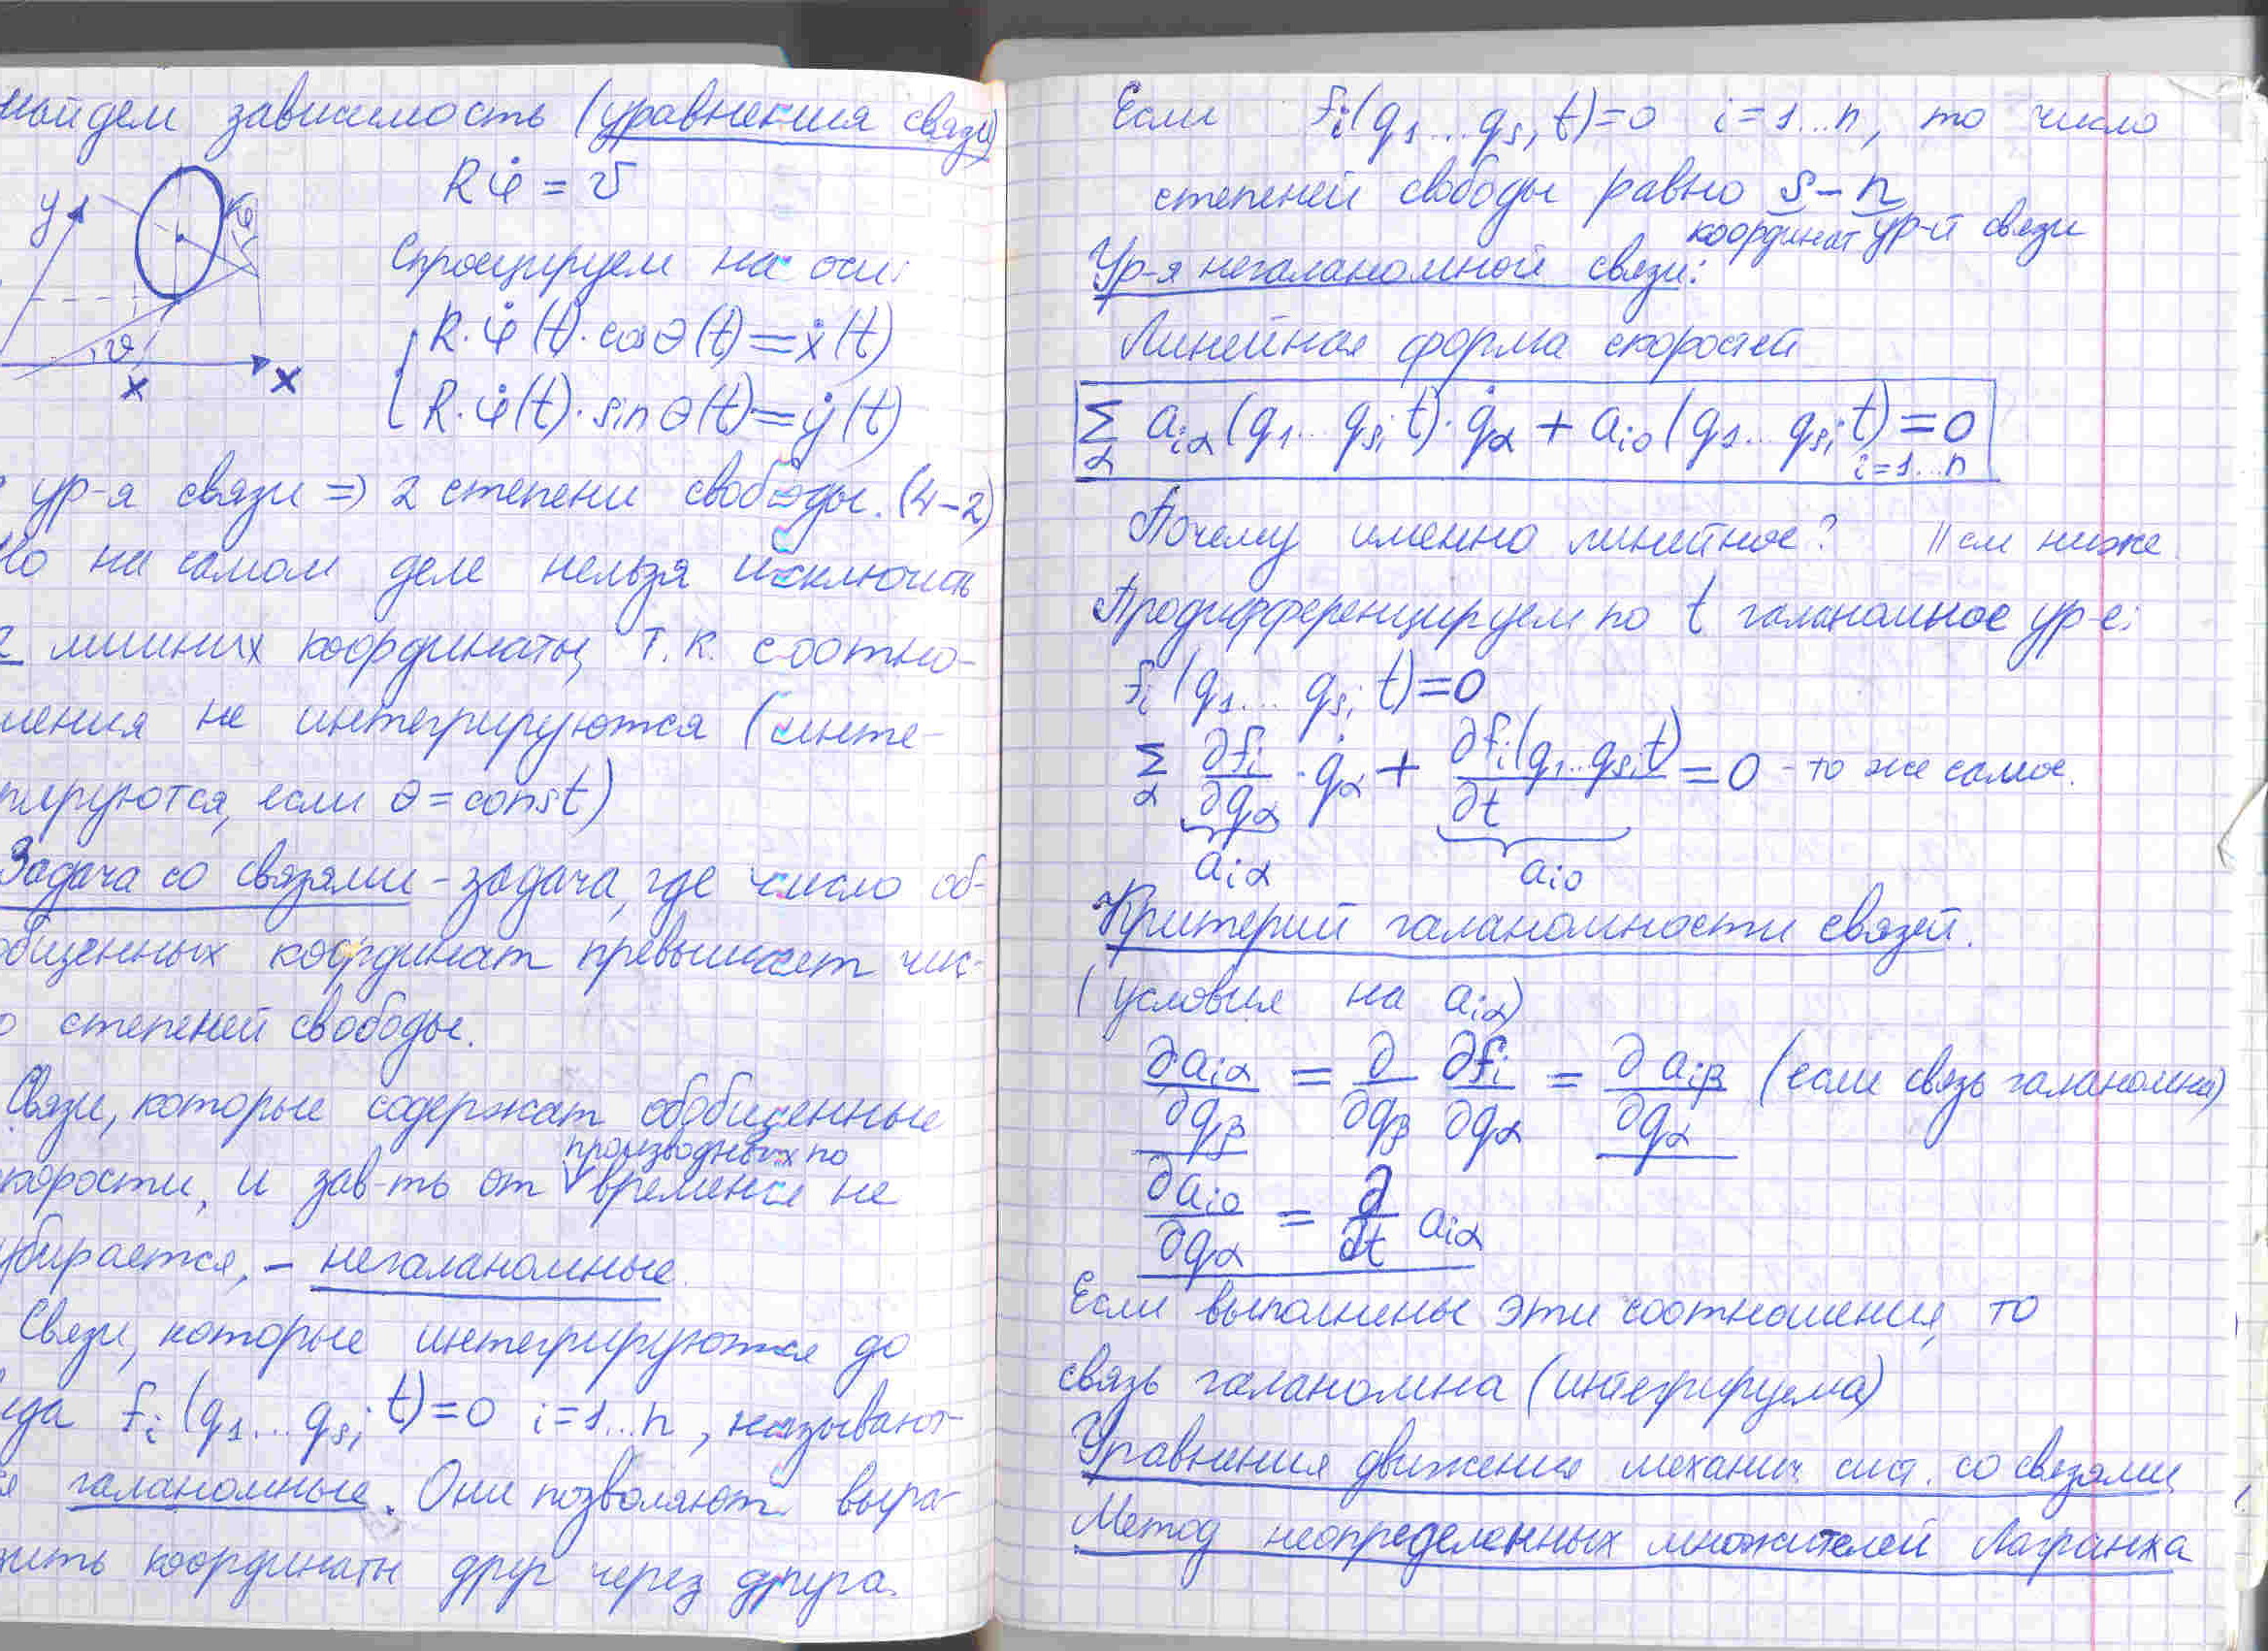 найдем зависимость (уравнения связи)
Rφ̇ = v
y
φ
ϑ
x
x
Спроецируем на оси:
R·φ̇(t)·cosθ(t)=ẋ(t)
R·φ̇(t)·sinθ(t)=ẏ(t)
ур-я связи ⇒ 2 степени свободы. (4-2)
Но на самом деле нельзя исключить
2 лишних координаты, т.к. соотно-
шения не интегрируются (инте-
грируются, если θ = const)
Задача со связями - задача, где число об-
общенных координат превышает чис-
о степеней свободы.
Связи, которые содержат обобщенные
производных по
корости, и зав-ть от ∨ времени не
убирается, – негаланомные.
Связи, которые интегрируются до
ида fᵢ(q₁...qₛ, t)=0 i=1...n, называют-
ся галаномные. Они позволяют выра-
зить координаты друг через друга.
Если fᵢ(q₁...qₛ, t)=0 i=1...n, то число
степеней свободы равно s – n
координат ур-й связи
Ур-я негаланомной связи:
Линейная форма скоростей
∑_α a_{iα}(q₁...qₛ, t)·q̇_α + a_{i0}(q₁...qₛ, t)=0
i=1...n
Почему именно линейное? // см ниже
Продифференцируем по t галаномное ур-е:
fᵢ(q₁...qₛ, t)=0
∑_α ∂fᵢ/∂q_α · q̇_α + ∂fᵢ(q₁...qₛ, t)/∂t = 0 - то же самое.
a_{iα} a_{i0}
Критерий галаномности связей.
(условия на a_{iα})
∂a_{iα}/∂q_β = ∂/∂q_β ∂fᵢ/∂q_α = ∂a_{iβ}/∂q_α (если связь галаномна)
∂a_{i0}/∂q_α = ∂/∂t a_{iα}
Если выполнены эти соотношения, то
связь галаномна (интегрируема)
Уравнения движения механич. сист. со связями
Метод неопределенных множителей Лагранжа